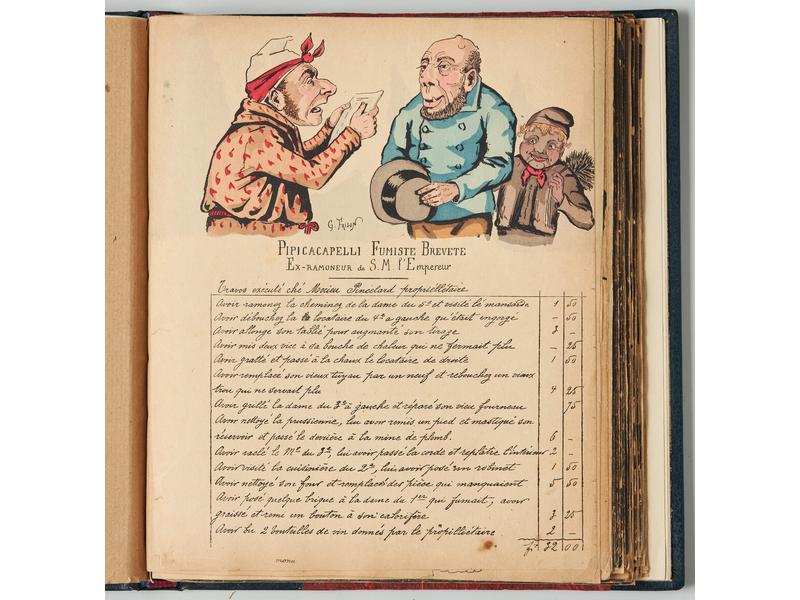 G. Frison
PIPICACAPELLI FUMISTE BREVETE
EX-RAMONEUR de S.M. l'Empereur
Travos exécuté ché Mocieu Pincelard propriéllétaire
Avoir ramonez la cheminez de la dame du 5e et visité le mansarde 1 50
Avoir débouchez la locataire du 4e a gauche qu'était engorgé - 50
Avoir allongé son tablié pour augmanté son tirage 3 -
Avoir mis deux vice à sa bouche de chaleur qui ne fermait plu - 25
Avoir gratté et passé à la chaux le locataire de droite 1 50
Avoir remplacé son vieux tuyau par un neuf et rebouchez un vieux
trou qui ne servait plu 4 25
Avoir grillé la dame du 3e à gauche et réparé son vieu fourneau 75
Avoir nettoyé la prussienne, lui avoir remis un pied et mastiqué son
réservoir et passé le derière à la mine de plomb. 6 -
Avoir raclé le Mr du 3e, lui avoir passé la corde et replâtré l'intérieur 2 -
Avoir visité la cuisinière du 2e, lui avoir posé un robinet 1 50
Avoir nettoyé son four et remplacé des pièce qui manquaient 5 50
Avoir posé quelque brique à la dame du 1er qui fumait, avoir
graissé et remi un bouton à son calorifère 3 25
Avoir bu 2 bouteilles de vin donnés par le propilliétaire 2 -
fr. 32 00